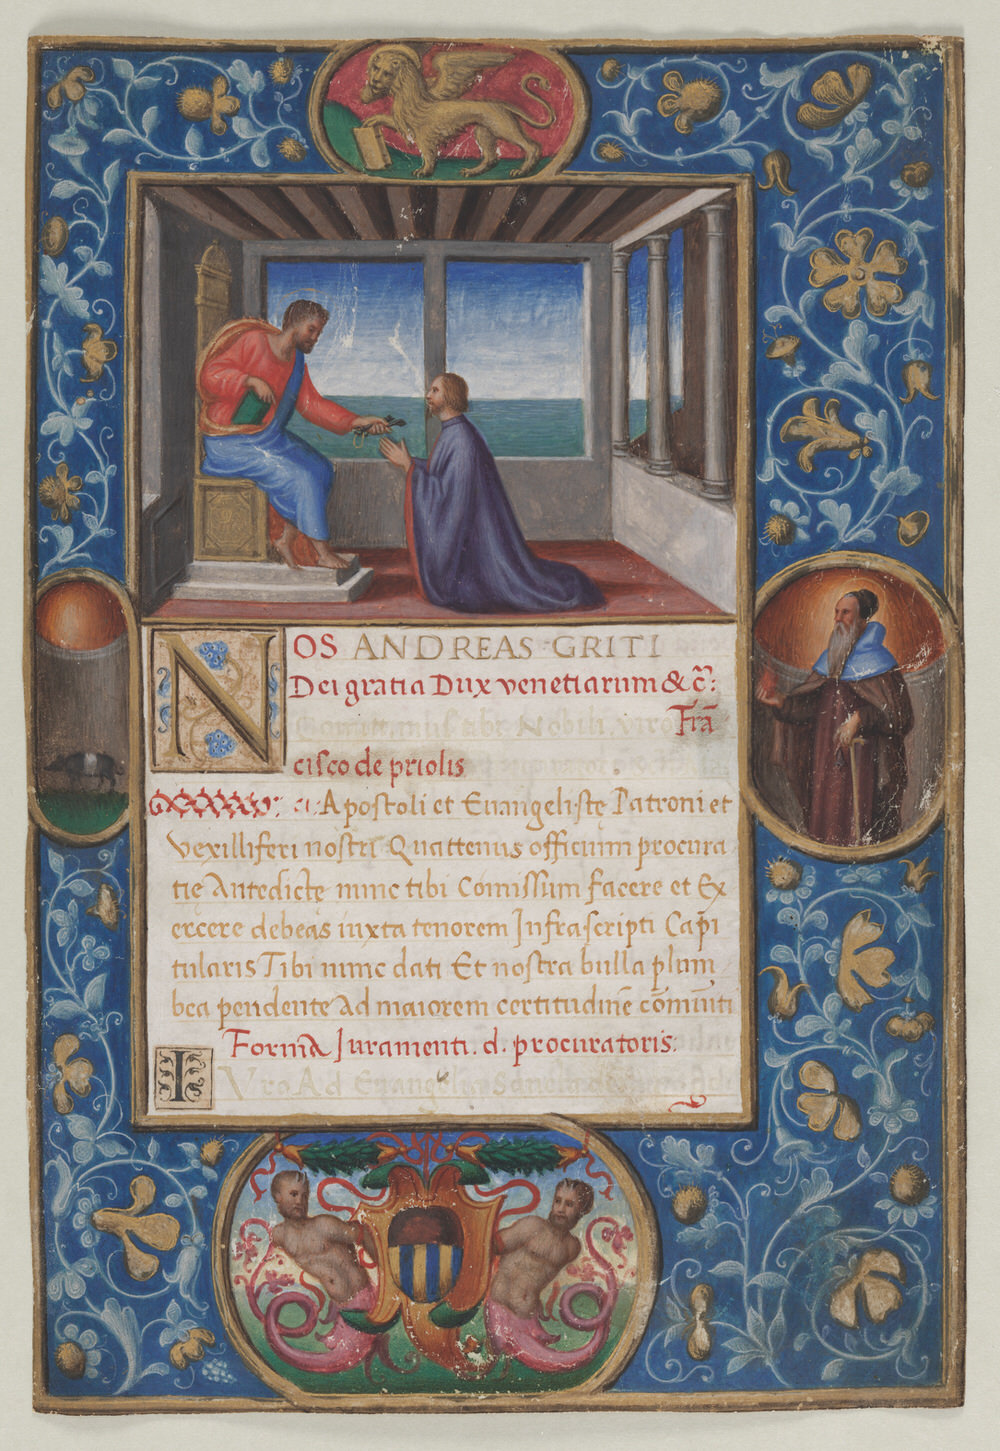 NOS ANDREAS GRITI
Dei gratia Dux venetiarum & c̃:
Comittimus tibi Nobili viro Frã
cisco de priolis
Apostoli et Euangelistę Patroni et
vexilliferi nostri Quattenus officium procura
tię Antedictę nunc tibi Comissum facere et Ex
ercere debeas iuxta tenorem Infrascripti Capi
tularis Tibi nunc dati Et nostra bulla plum
bea pendente Ad maiorem certitudinẽ cõmuniti
Forma Juramenti . d . procuratoris .
IVro Ad Euangelia Sancta